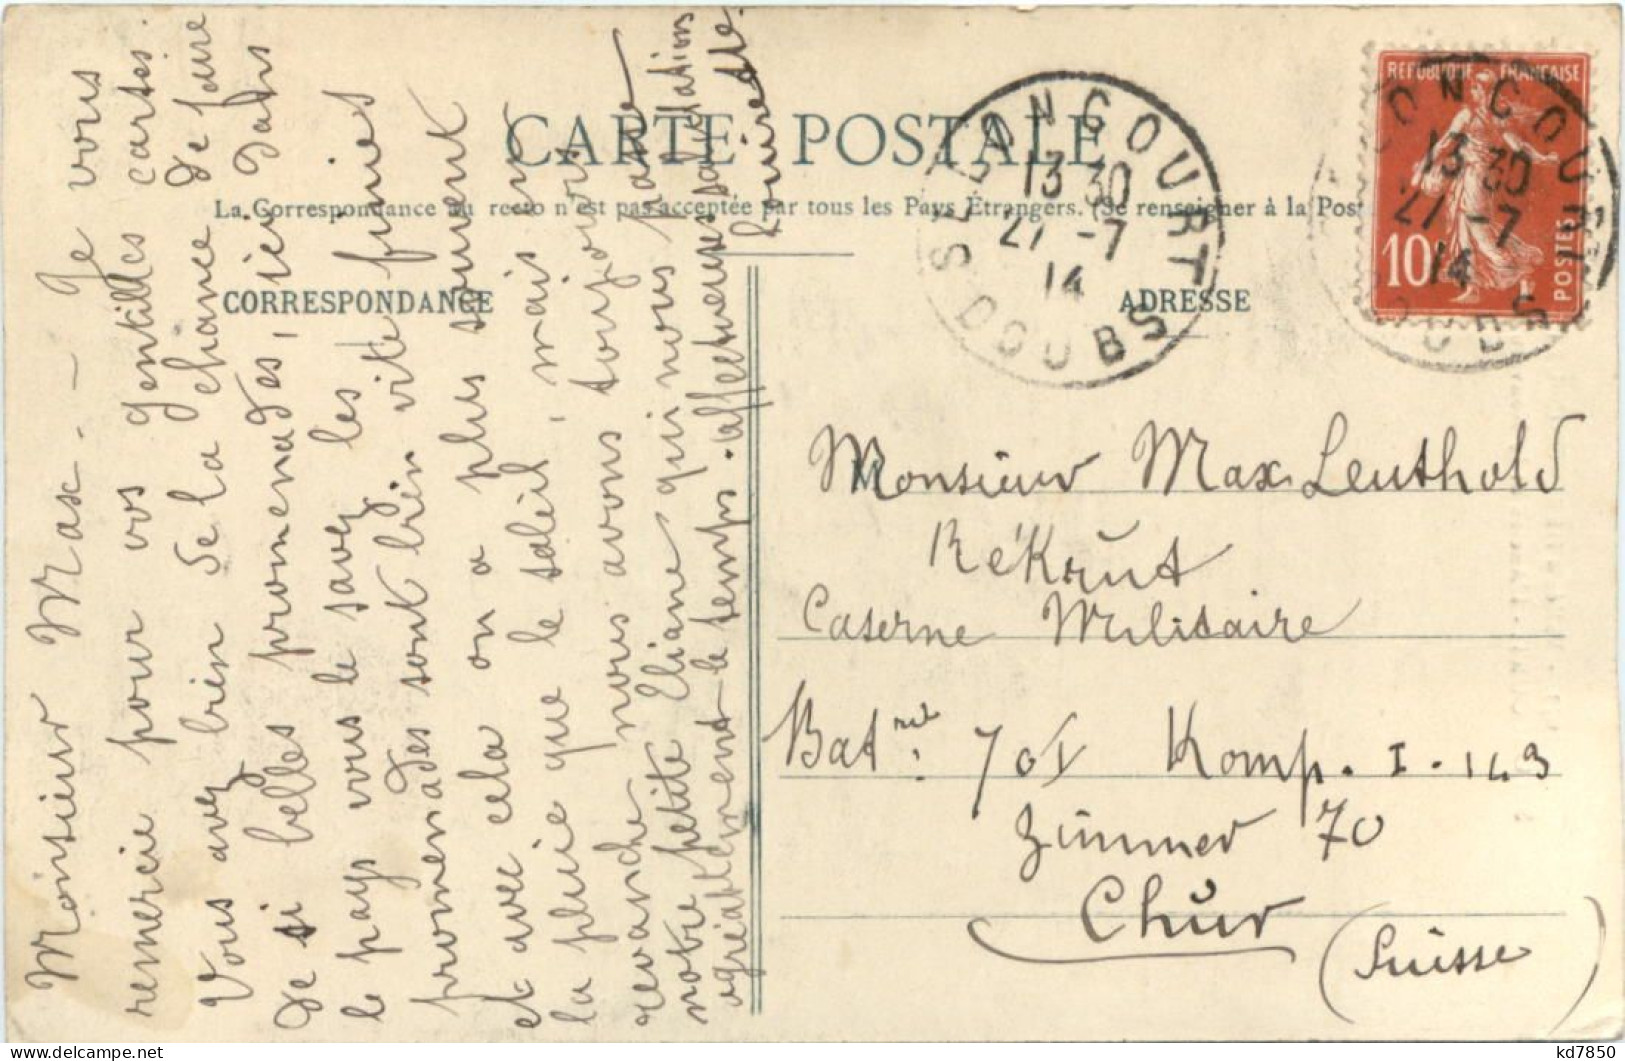 CARTE POSTALE
La Correspondance au recto n'est pas acceptée par tous les Pays Étrangers. (Se renseigner à la Pos
CORRESPONDANCE
ADRESSE
Monsieur Max. — Je vous
remercie pour vos gentilles cartes.
Vous avez bien de la chance de faire
de si belles promenades, ici dans
le pays vous le savez les
promenades sont bien vite finies
et avec cela on a plus souvent
la pluie que le soleil, mais en
revanche nous avons toujours
notre petite Eliane qui nous passe
agréablement le temps. affectueuses salutations
Louise
LONGOURT
13 30
27 -7
14
DOUBS
REPUBLIQUE FRANÇAISE
10c
POSTES
LONGOURT
13 30
27 -7
14
DOUBS
Monsieur Max Leuthold
Rékrut
Caserne Militaire
Bat. 70 Komp. I. 143
Zimmer 70
Chur
(Suisse)
kd7850